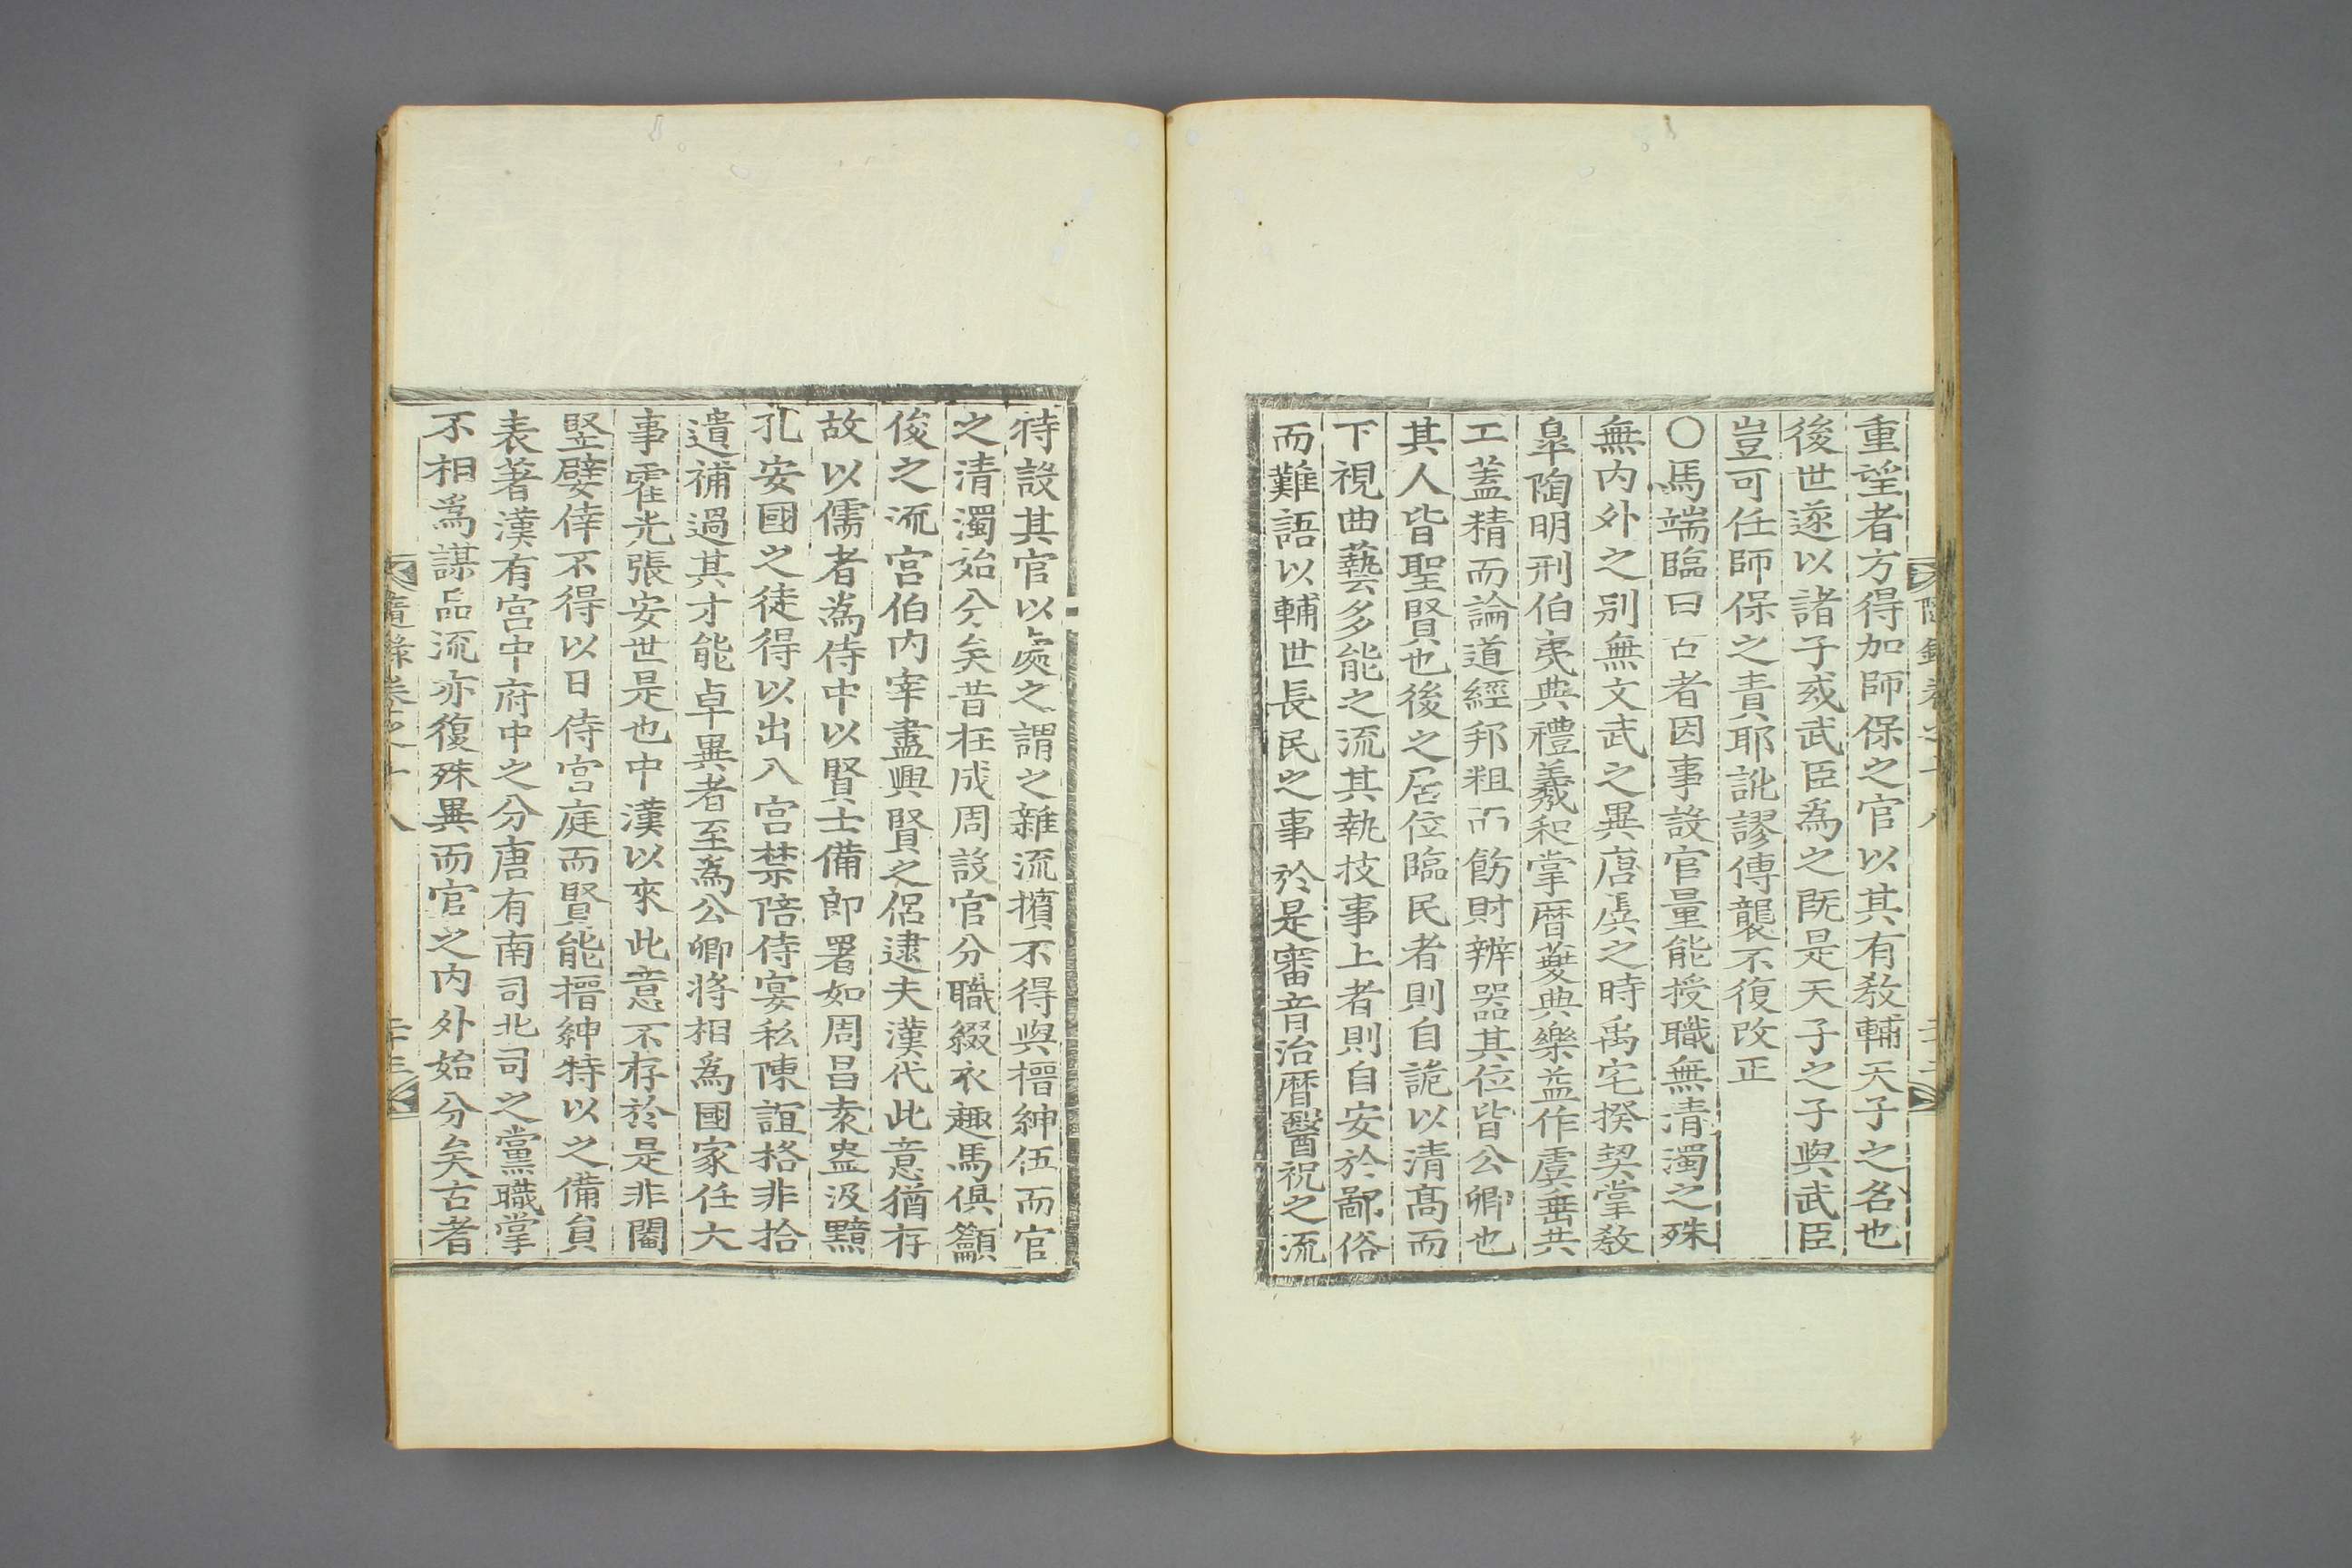 重望者方得加師保之官以其有敎輔天子之名也
後世遂以諸子或武臣爲之旣是天子之子與武臣
豈可任師保之責耶訛謬傳襲不復改正
○馬端臨曰古者因事設官量能授職無淸濁之殊
無內外之別無文武之異唐虞之時禹宅揆契掌敎
皐陶明刑伯夷典禮羲和掌曆夔典樂益作虞垂共
工蓋精而論道經邦粗而飭財辨器其位皆公卿也
其人皆聖賢也後之居位臨民者則自詭以清高而
下視曲藝多能之流其執技事上者則自安於鄙俗
而難語以輔世長民之事於是審音治曆醫祝之流
特設其官以處之謂之雜流擯不得與搢紳伍而官
之清濁始分矣昔在成周設官分職綴衣趣馬俱籲
俊之流宮伯內宰盡興賢之侶逮夫漢代此意猶存
故以儒者爲侍中以賢士備郎署如周昌袁盎汲黯
孔安國之徒得以出入宮禁陪侍宴私陳誼格非拾
遺補過其才能卓異者至爲公卿將相爲國家任大
事霍光張安世是也中漢以來此意不存於是非閹
竪嬖倖不得以日侍宮庭而賢能搢紳特以之備員
表著漢有宮中府中之分唐有南司北司之黨職掌
不相爲謀品流亦復殊異而官之內外始分矣古者
隨錄卷之十八